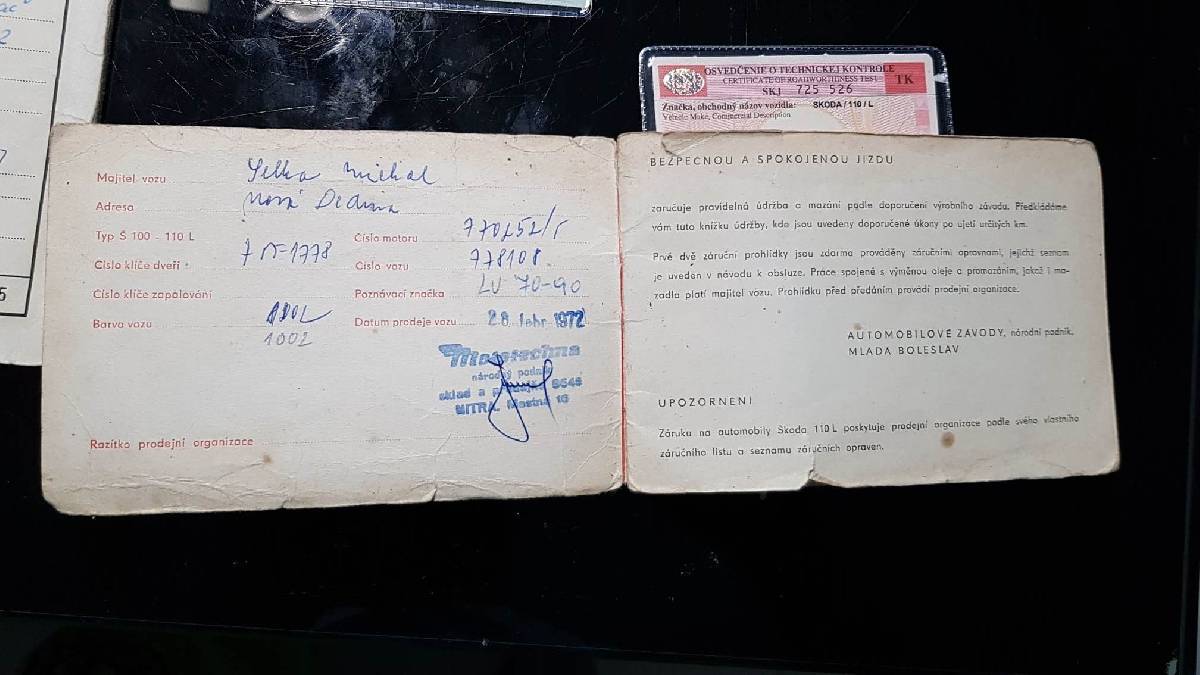 OSVEDČENIE O TECHNICKEJ KONTROLE
CERTIFICATE OF ROADWORTHINESS TEST
TK
SKJ 725 526
Značka, obchodný názov vozidla: SKODA / 110 / L
Vehicle Make, Commercial Description
Majitel vozu Michal
Adresa Nová Dedina
Typ Š 100 - 110 L
Číslo motoru
Číslo klíče dveří
Číslo vozu 778108
Číslo klíče zapalování
Poznávací značka LV 70-90
Barva vozu
Datum prodeje vozu 28. febr. 1972
Mototechna
národný podnik
sklad a
NITRA, Mostná
Razítko prodejní organizace
BEZPEČNOU A SPOKOJENOU JÍZDU
zaručuje pravidelná údržba a mazání podle doporučení výrobního závodu. Předkládáme
vám tuto knížku údržby, kde jsou uvedeny doporučené úkony po ujetí určitých km.
Prvé dvě záruční prohlídky jsou zdarma prováděny záručními opravnami, jejichž seznam
je uveden v návodu k obsluze. Práce spojené s výměnou oleje a promazáním, jakož i ma-
zadla platí majitel vozu. Prohlídku před předáním provádí prodejní organizace.
AUTOMOBILOVÉ ZÁVODY, národní podnik,
MLADÁ BOLESLAV
UPOZORNĚNÍ
Záruku na automobily Škoda 110 L poskytuje prodejní organizace podle svého vlastního
záručního listu a seznamu záručních opraven.